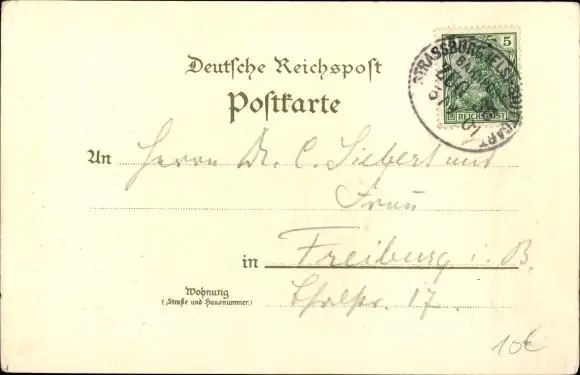 Deutsche Reichspost
Postkarte
5
REICHSPOST
STRASSBURG (ELS) STUTTGART
BAHNPOST
ZUG
An Herrn Dr. C. Siebert und
Frau
in Freiburg i. B.
Wohnung
(Straße und Hausnummer)
17.
10€